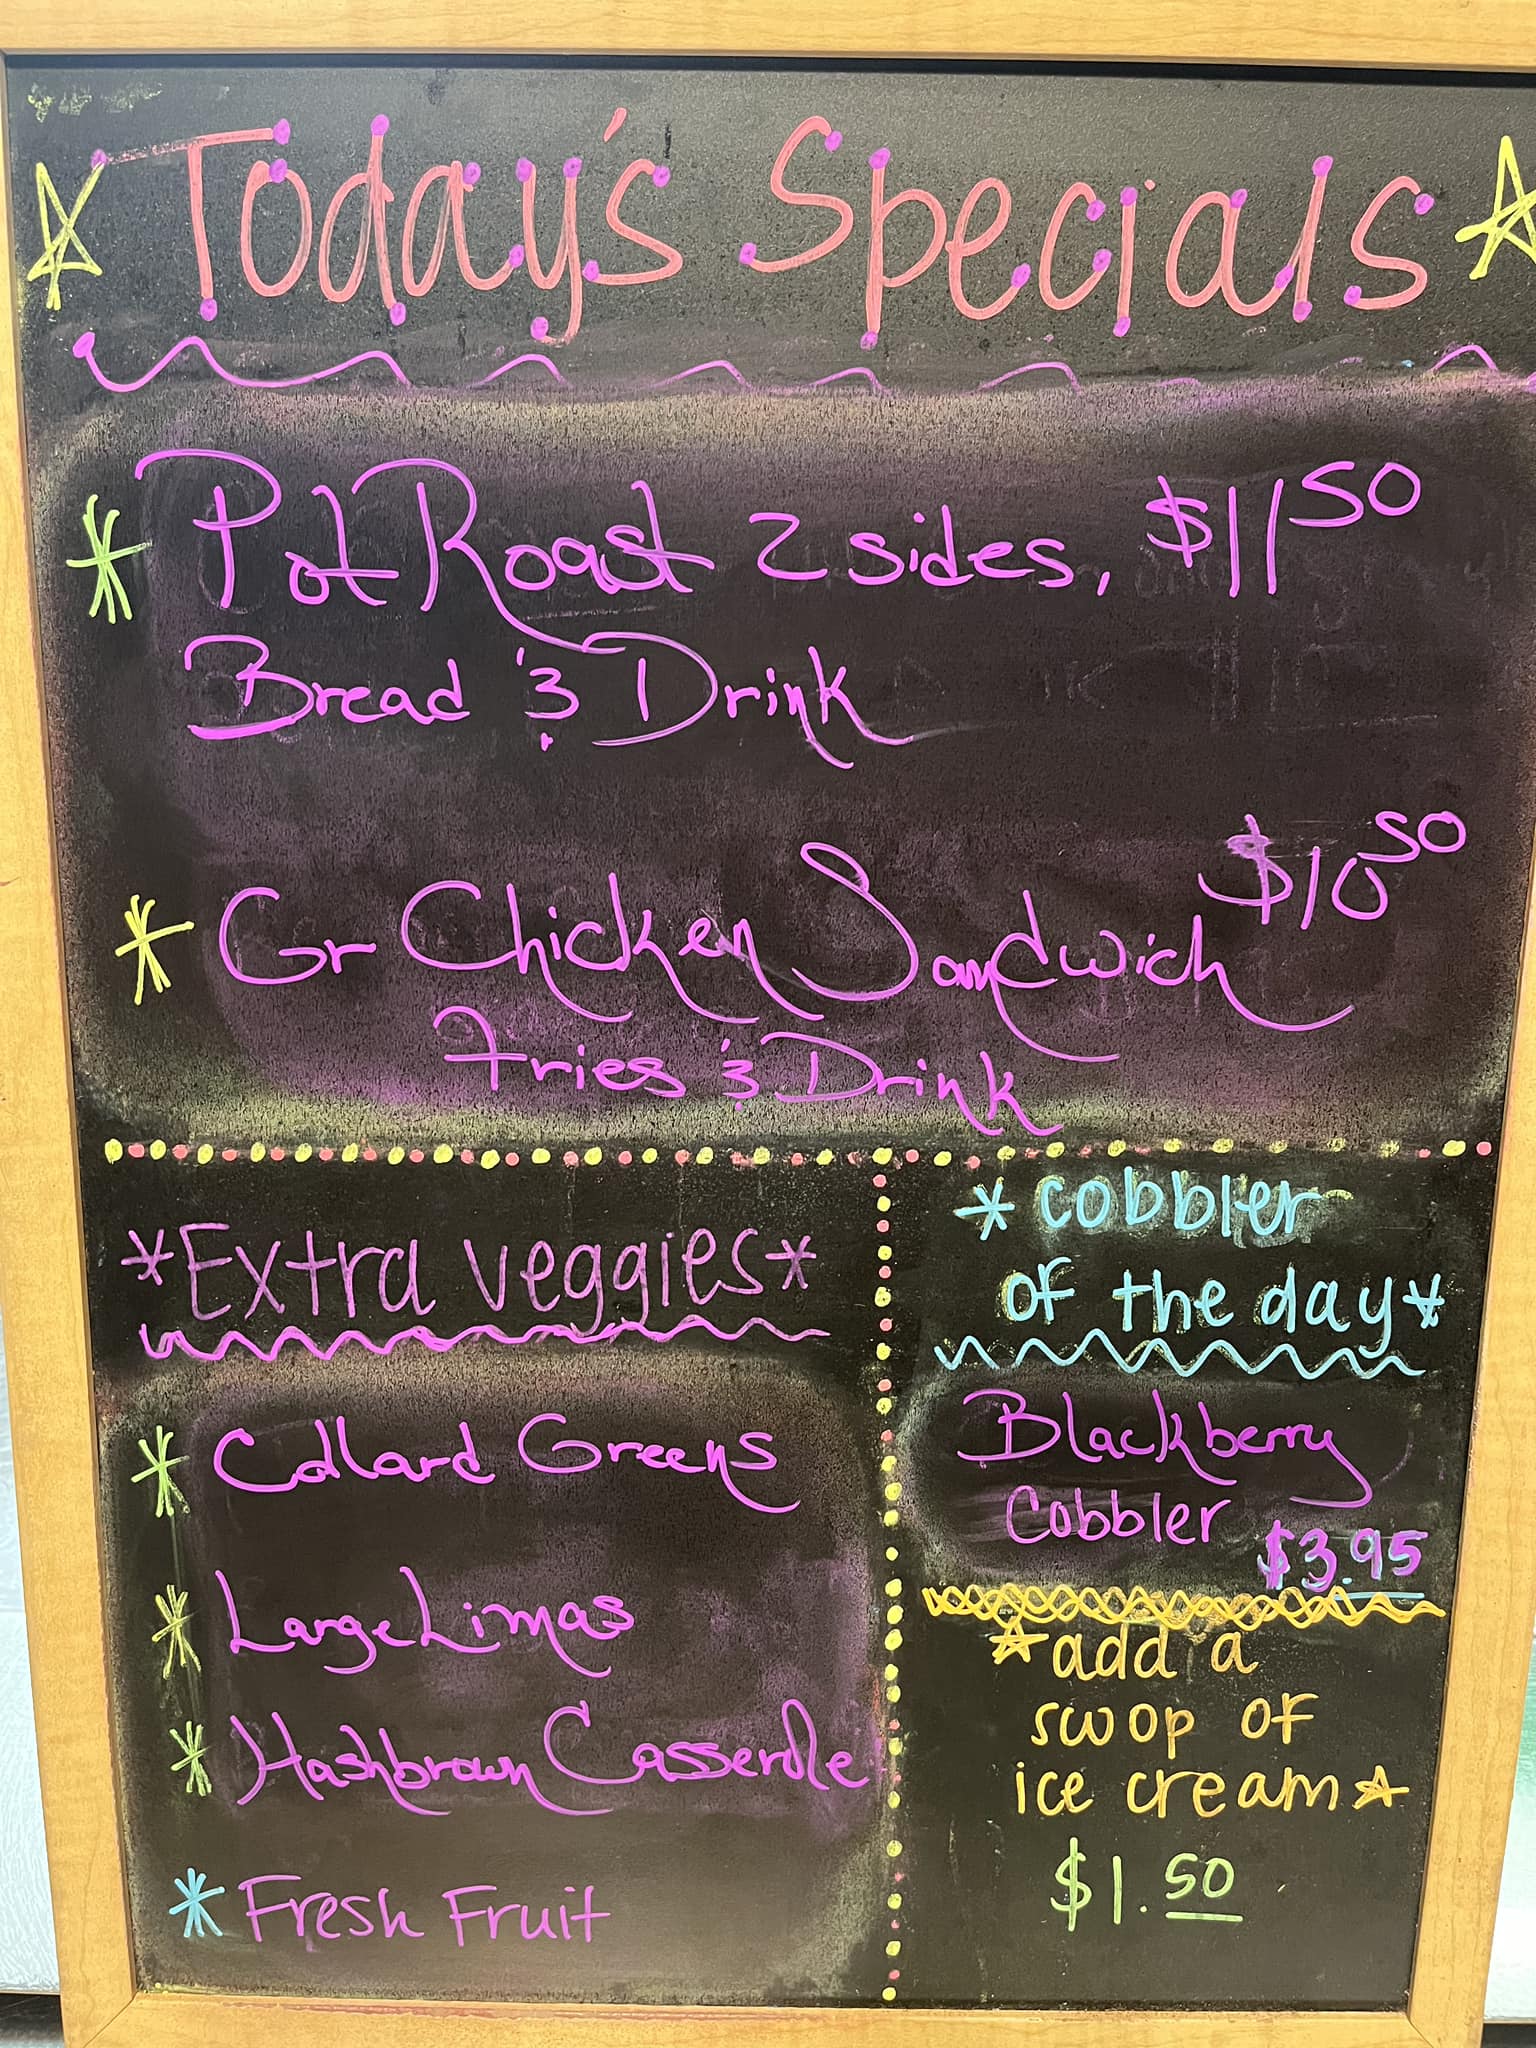 Today's Specials
Pot Roast 2 sides, $11.50
Bread & Drink
Gr Chicken Sandwich $10.50
Fries & Drink
*Extra veggies*
Collard Greens
Large Limas
Hashbrown Casserole
Fresh Fruit
*cobbler
of the day*
Blackberry
Cobbler $3.95
add a
swop of
ice cream
$1.50